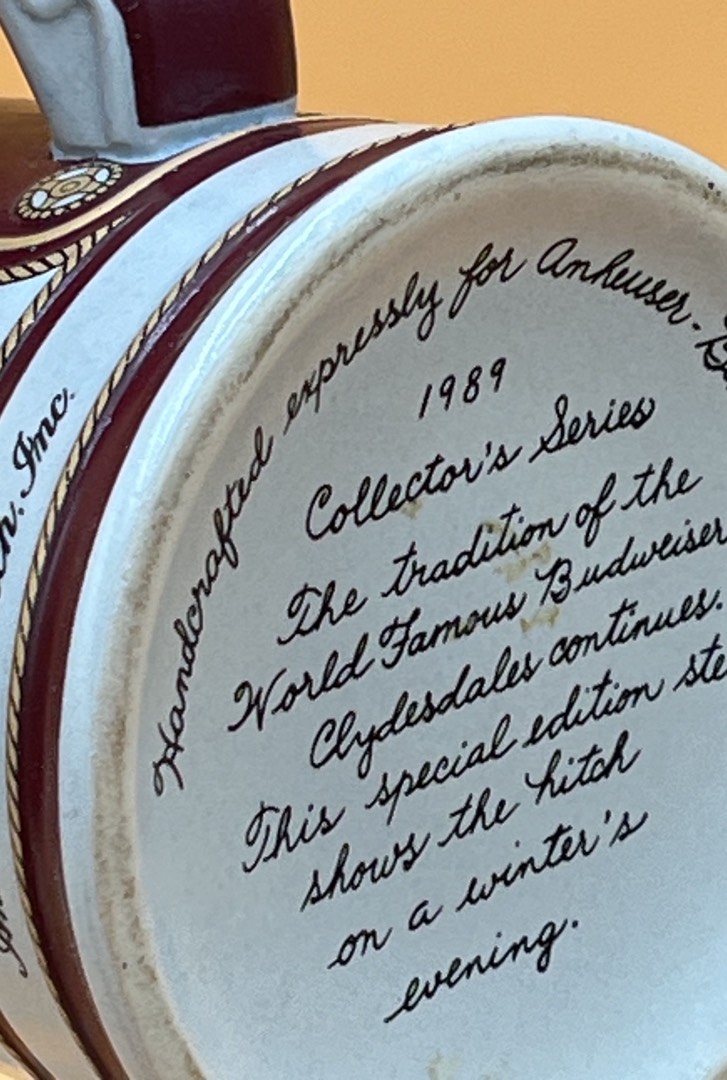 Handcrafted expressly for Anheuser-
1989
Collector's Series
The tradition of the
World Famous Budweiser
Clydesdales continues.
This special edition
shows the hitch
on a winter's
evening.
Inc.